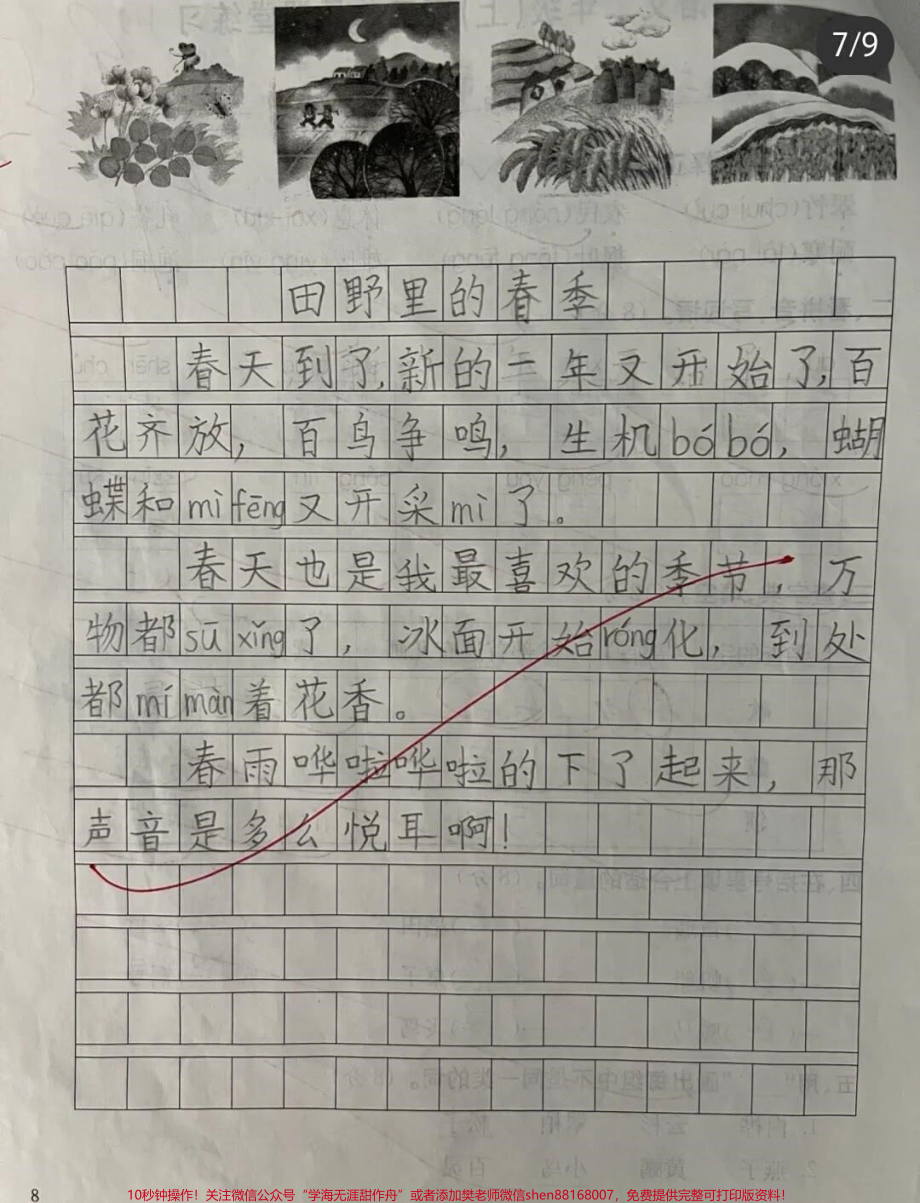 7/9
田野里的春季
春天到了,新的一年又开始了,百
花齐放，百鸟争鸣，生机bóbó，蝴
蝶和mìfēng又开采mì了。
春天也是我最喜欢的季节，万
物都sūxǐng了，冰面开始róng化，到处
都mímàn着花香。
春雨哗啦哗啦的下了起来，那
声音是多么悦耳啊！
8
10秒钟操作！关注微信公众号“学海无涯甜作舟”或者添加樊老师微信shen88168007，免费提供完整可打印版资料！